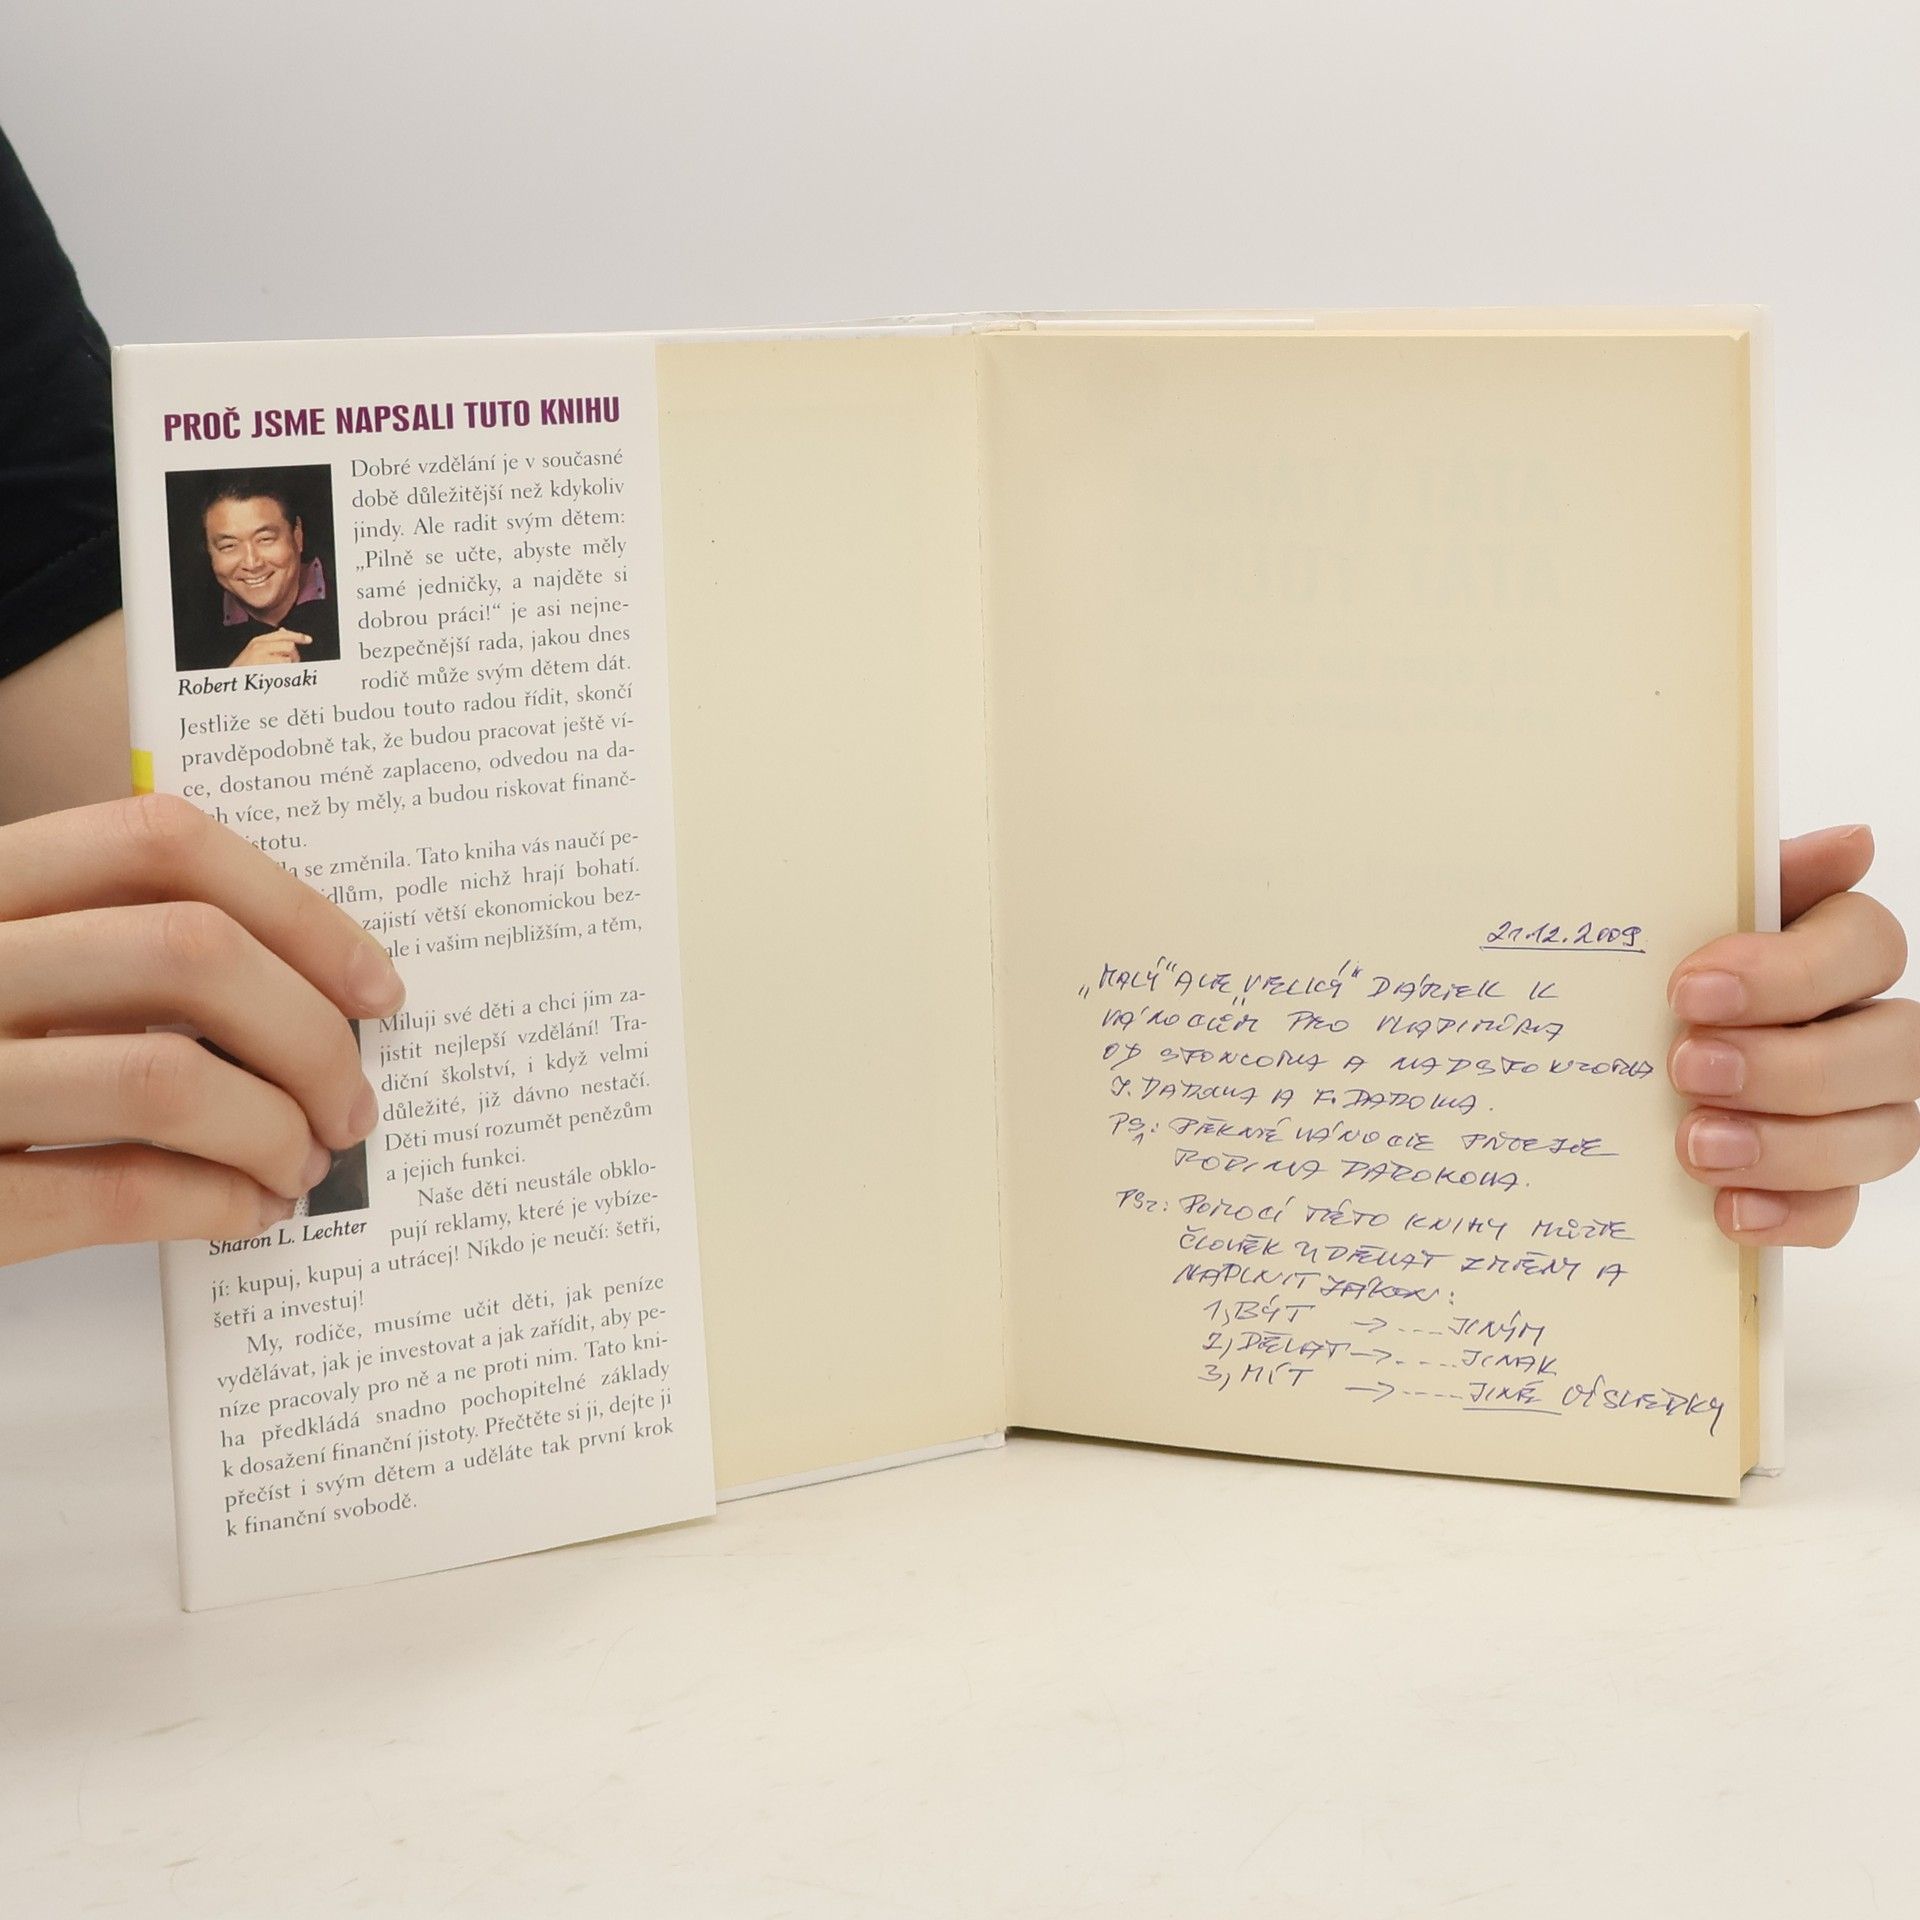 PROČ JSME NAPSALI TUTO KNIHU
Dobré vzdělání je v současné
době důležitější než kdykoliv
jindy. Ale radit svým dětem:
„Pilně se učte, abyste měly
samé jedničky, a najděte si
dobrou práci!“ je asi nejne-
bezpečnější rada, jakou dnes
rodič může svým dětem dát.
Robert Kiyosaki
Jestliže se děti budou touto radou řídit, skončí
pravděpodobně tak, že budou pracovat ještě ví-
ce, dostanou méně zaplaceno, odvedou na da-
ch více, než by měly, a budou riskovat finanč-
stotu.
la se změnila. Tato kniha vás naučí pe-
idlům, podle nichž hrají bohatí.
zajistí větší ekonomickou bez-
ale i vašim nejbližším, a těm,
Miluji své děti a chci jim za-
jistit nejlepší vzdělání! Tra-
diční školství, i když velmi
důležité, již dávno nestačí.
Děti musí rozumět penězům
a jejich funkci.
Naše děti neustále obklo-
pují reklamy, které je vybíze-
Sharon L. Lechter
jí: kupuj, kupuj a utrácej! Nikdo je neučí: šetři,
šetři a investuj!
My, rodiče, musíme učit děti, jak peníze
vydělávat, jak je investovat a jak zařídit, aby pe-
níze pracovaly pro ně a ne proti nim. Tato kni-
ha předkládá snadno pochopitelné základy
k dosažení finanční jistoty. Přečtěte si ji, dejte ji
přečíst i svým dětem a uděláte tak první krok
k finanční svobodě.
21.12.2009
„MALÝ“ ALE „VELKÝ“ DÁREK K
VÁNOCŮM PRO VLADIMÍRA
OD A
A
PS1: PĚKNÉ VÁNOCE PŘEJE
RODINA
PS2: POMOCÍ TÉTO KNIHY MŮŽE
ČLOVĚK UDĚLAT ZMĚNY A
NAPLNIT ZÁKON:
1, BÝT → ---- JINÝM
2, DĚLAT → ---- JINAK
3, MÍT → ---- JINÉ VÝSLEDKY